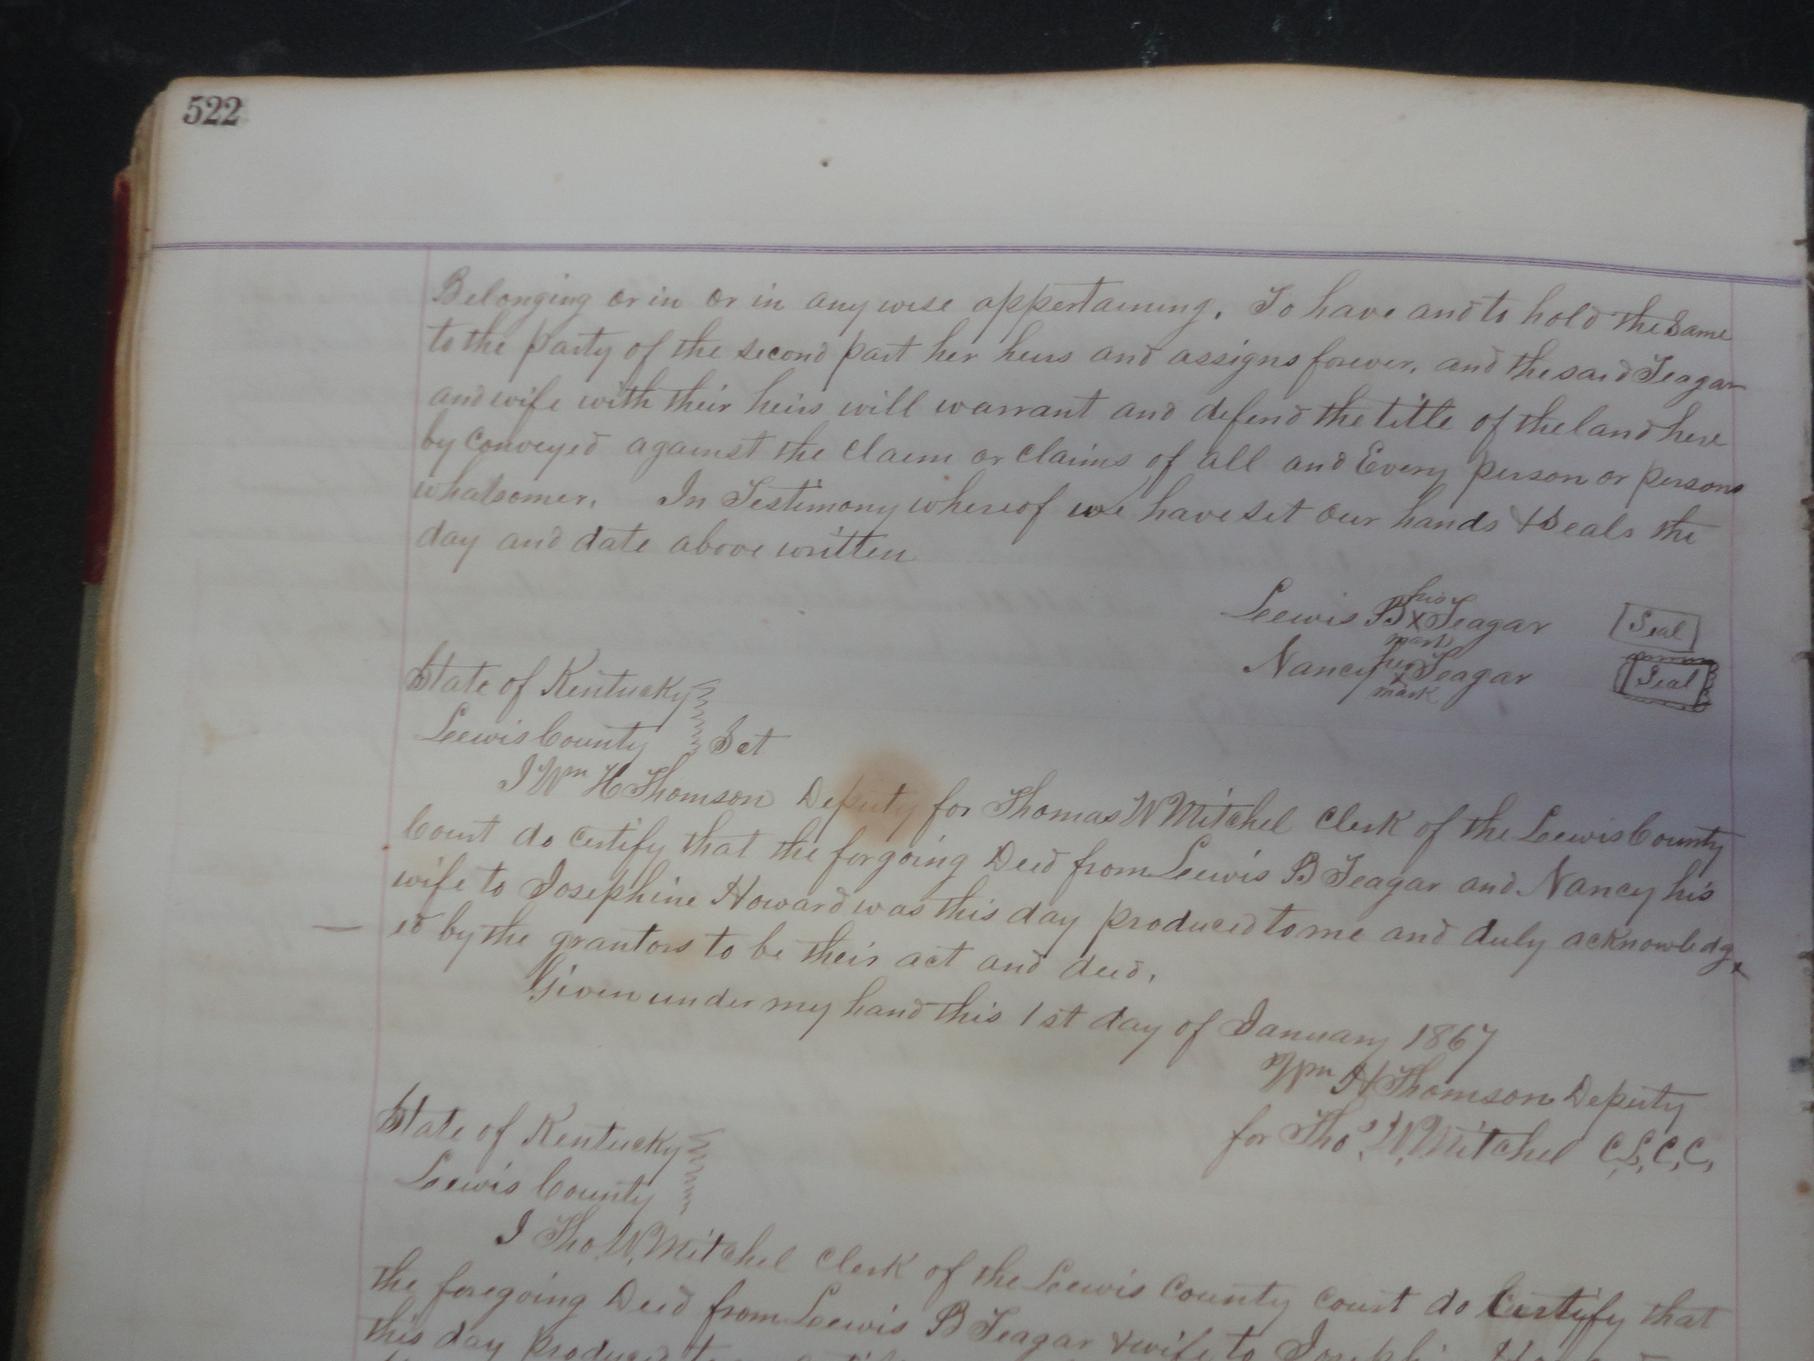 522
Belonging or in or in any wise appertaining. To have and to hold the Same
to the party of the second part her heirs and assigns forever. and the said Teagar
and wife with their heirs will warrant and defend the title of the land here
by conveyed against the Claim or Claims of all and Every person or persons
whatsomer. In Testimony whereof we have set our hands & Seals the
day and date above written
his
Lewis B x Teagar Seal
mark
her
Nancy x Teagar Seal
mark
State of Kentucky
Lewis County Sct
I Wm H Thomson Deputy for Thomas W Mitchel Clerk of the Lewis County
Court do certify that the forgoing Deed from Lewis B Teagar and Nancy his
wife to Josephine Howard was this day produced to me and duly acknowledg
ed by the grantors to be their act and deed.
Given under my hand this 1st day of January 1867
Wm H Thomson Deputy
for Thos. W. Mitchel C.L.C.C.
State of Kentucky
Lewis County
I Tho. W. Mitchel Clerk of the Lewis County Court do Certify that
the foregoing Deed from Lewis B Teagar & wife to
this day produced